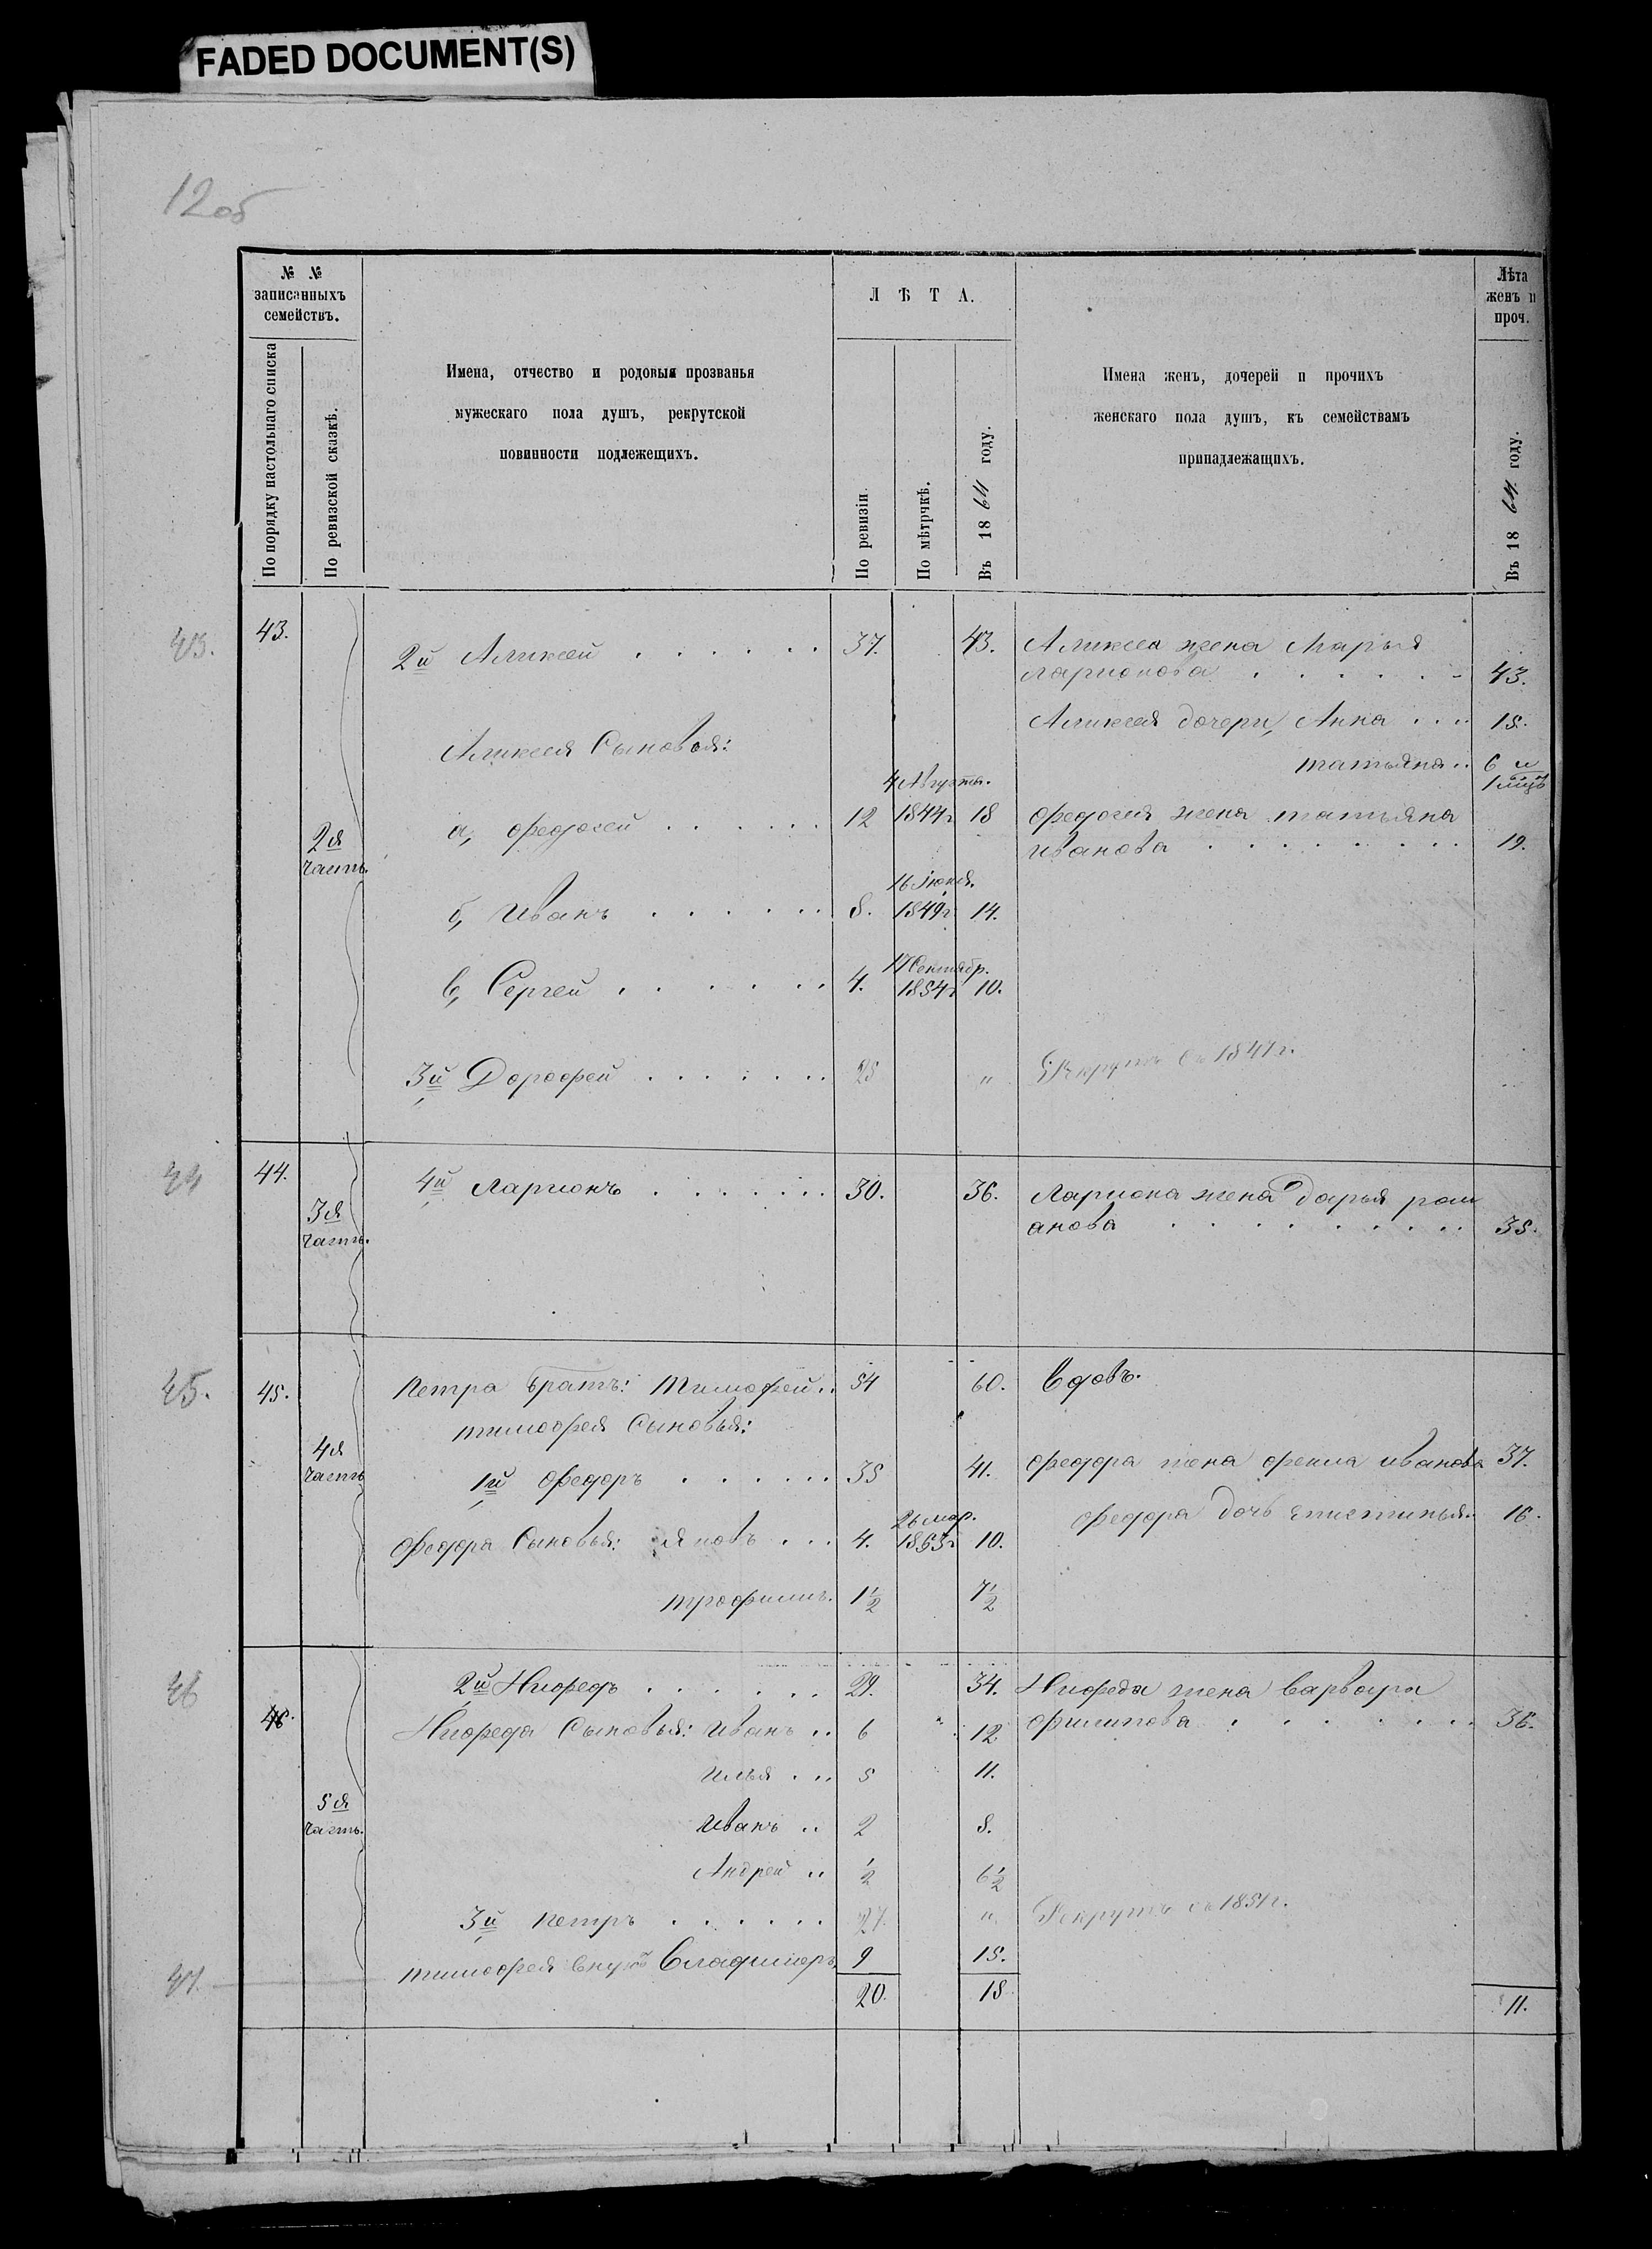 FADED DOCUMENT(S)
12об
№ №
записанныхъ
семействъ.
По порядку настольнаго списка
По ревизской сказкѣ.
Имена, отчество и родовыя прозванья
мужескаго пола душъ, рекрутской
повинности подлежещихъ.
Л Ѣ Т А.
По ревизіи
По мѣтрчкѣ.
Въ 1864 году.
Имена женъ, дочерей и прочихъ
женскаго пола душъ, къ семействамъ
принадлежащихъ.
Лѣта
женъ и
проч.
Въ 1864 году.
43. 43. 2й Аликсей 37. 43. Аликсея жена Марья
Ларионова 43.
Аликсея дочери, Анна 15.
Аликсея Сыновья:
татьяна 6 и
1 мцъ
2я
часть.
4 Августа.
а, федосей 12 1844г 18 федосея жена татьяна
иванова 19.
16 Июня.
б, Иванъ 8. 1849г 14.
17 Сентябр.
в, Сергей 4. 1854г 10.
3й Дорофей 25 " Рекрутъ съ 1841г.
44 44. 4й Ларионъ 30. 36. Лариона жена Дарья ром
анова 35.
3я
часть.
45. 45. Петра братъ: Тимофей 54 60. вдовъ.
тимофея Сыновья:
4я
часть
1й федоръ 35 41. федора жена фекла иванова 37.
федора дочь Епистинья 16.
26 мар.
федора Сыновья: Яковъ 4. 1853г 10.
трофимъ. 1½ 7½
46 46. 2й Нифедъ 29. 34. Нифеда жена варвара
филипова 36.
Нифеда Сыновья: Иванъ 6 12
Илья 5 11.
5я
часть.
Иванъ 2 8.
Андрей ½ 6½
3й Петръ 27. " Рекрутъ съ 1851г.
47. тимофея внукъ Владимеръ 9 15.
20. 18 11.